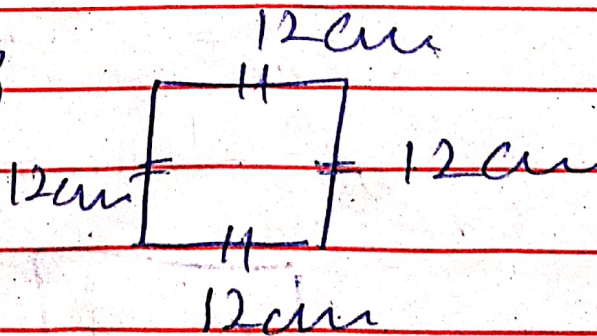 12cm
12cm 12cm
12cm